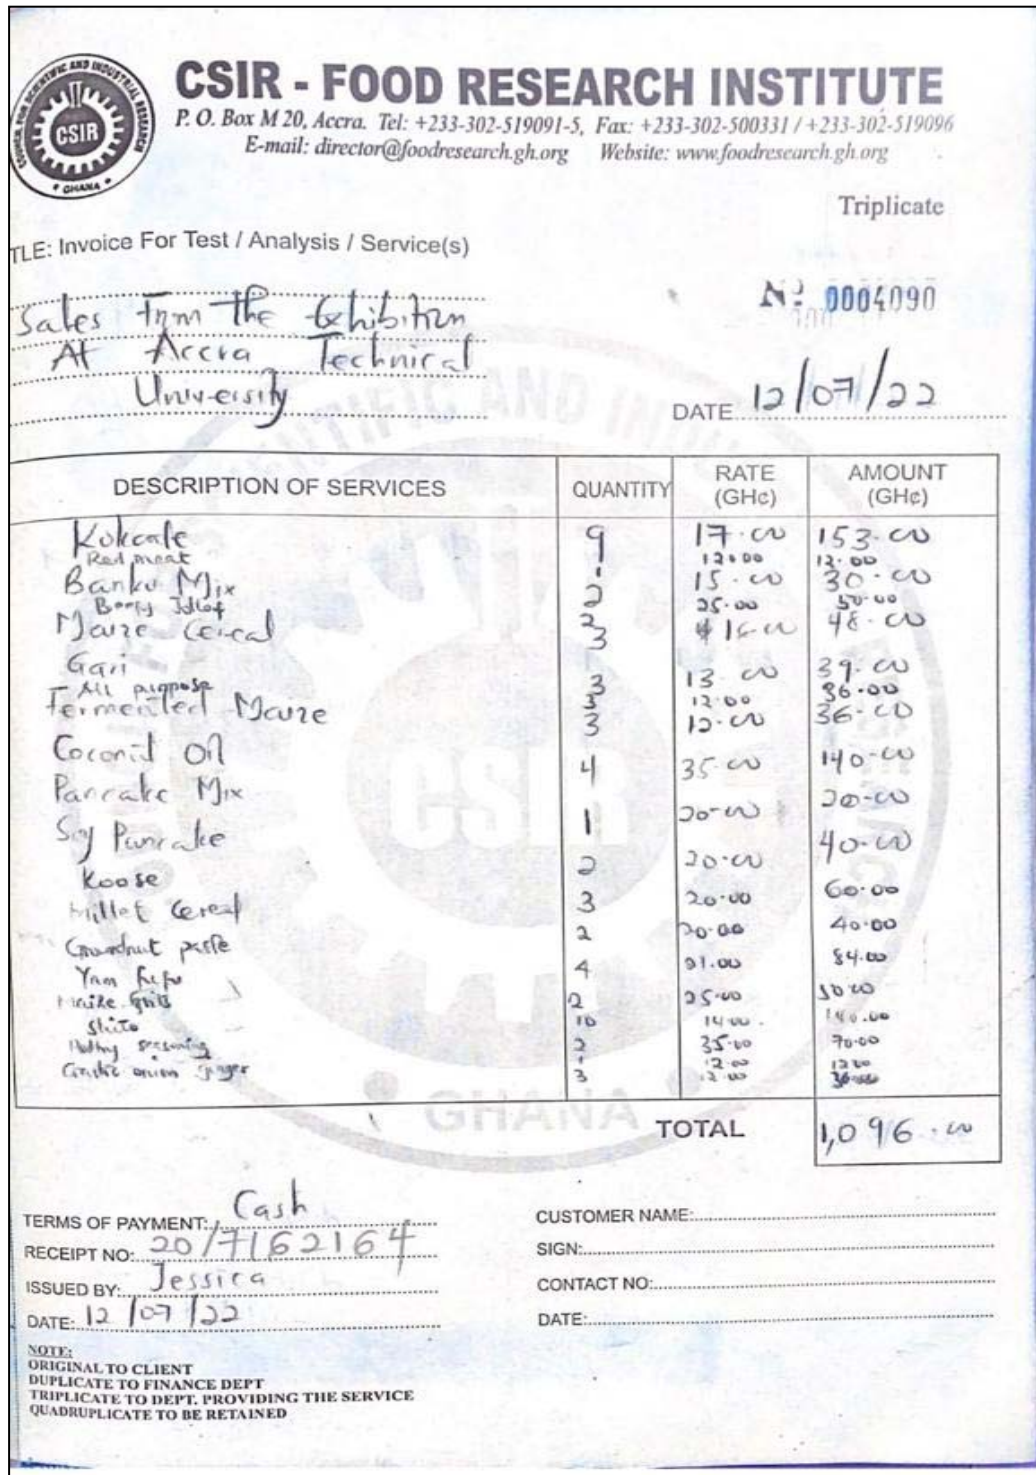 COUNCIL FOR SCIENTIFIC AND INDUSTRIAL RESEARCH
CSIR
GHANA
CSIR - FOOD RESEARCH INSTITUTE
P. O. Box M 20, Accra. Tel: +233-302-519091-5, Fax: +233-302-500331 / +233-302-519096
E-mail: director@foodresearch.gh.org Website: www.foodresearch.gh.org
Triplicate
TLE: Invoice For Test / Analysis / Service(s)
Nº 0004090
Sales from the Exhibition
At Accra Technical
University
DATE 12/07/22
DESCRIPTION OF SERVICES QUANTITY RATE (GH¢) AMOUNT (GH¢)
Kokcafe 9 17.00 153.00
Red meat 1 12.00 12.00
Banku Mix 2 15.00 30.00
Jollof 2 25.00 50.00
Maize Cereal 3 16.00 48.00
Gari 3 13.00 39.00
All purpose 3 12.00 36.00
Fermented Maize 3 12.00 36.00
Coconut Oil 4 35.00 140.00
Pancake Mix 1 20.00 20.00
Soy Pancake 2 20.00 40.00
Koose 3 20.00 60.00
Millet Cereal 2 20.00 40.00
Groundnut paste 4 21.00 84.00
Yam fufu 2 25.00 50.00
Maize Grits 10 14.00 140.00
Shito 2 35.00 70.00
seasoning 1 12.00 12.00
onion ginger 3 12.00 36.00
TOTAL 1,096.00
TERMS OF PAYMENT: Cash
RECEIPT NO: 20/7162164
ISSUED BY: Jessica
DATE: 12/07/22
CUSTOMER NAME:
SIGN:
CONTACT NO:
DATE:
NOTE:
ORIGINAL TO CLIENT
DUPLICATE TO FINANCE DEPT
TRIPLICATE TO DEPT. PROVIDING THE SERVICE
QUADRUPLICATE TO BE RETAINED